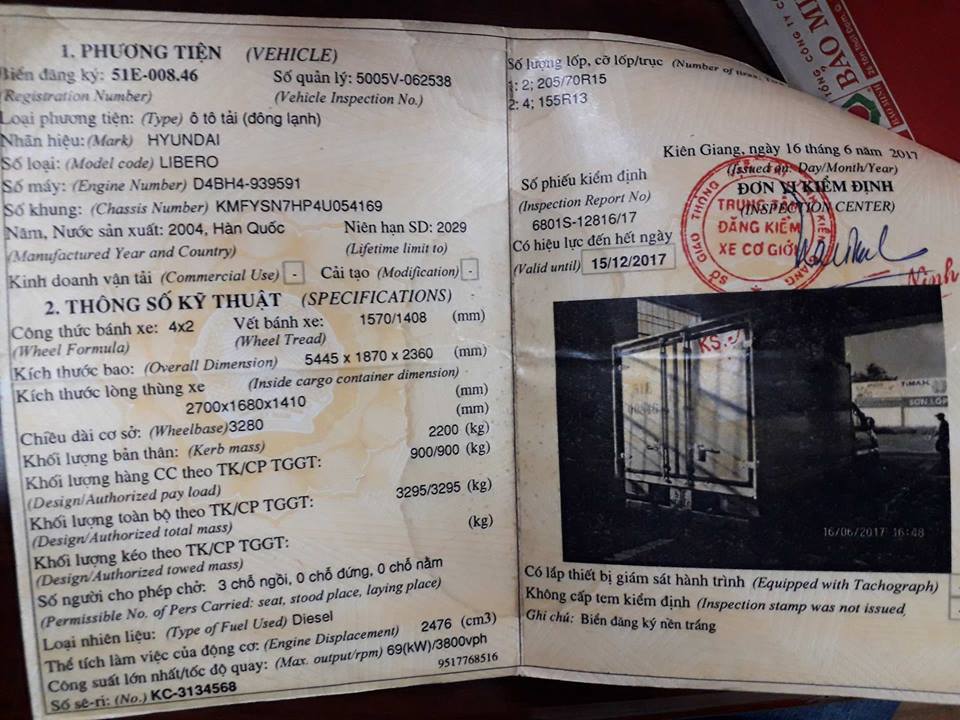 1. PHƯƠNG TIỆN (VEHICLE)
Biển đăng ký: 51E-008.46 Số quản lý: 5005V-062538
(Registration Number) (Vehicle Inspection No.)
Loại phương tiện: (Type) ô tô tải (đông lạnh)
Nhãn hiệu: (Mark) HYUNDAI
Số loại: (Model code) LIBERO
Số máy: (Engine Number) D4BH4-939591
Số khung: (Chassis Number) KMFYSN7HP4U054169
Năm, Nước sản xuất: 2004, Hàn Quốc Niên hạn SD: 2029
(Manufactured Year and Country) (Lifetime limit to)
Kinh doanh vận tải (Commercial Use) - Cải tạo (Modification) -
2. THÔNG SỐ KỸ THUẬT (SPECIFICATIONS)
Công thức bánh xe: 4x2 Vết bánh xe: 1570/1408 (mm)
(Wheel Formula) (Wheel Tread)
Kích thước bao: (Overall Dimension) 5445 x 1870 x 2360 (mm)
Kích thước lòng thùng xe (Inside cargo container dimension)
2700x1680x1410 (mm)
Chiều dài cơ sở: (Wheelbase) 3280 (mm)
Khối lượng bản thân: (Kerb mass) 2200 (kg)
Khối lượng hàng CC theo TK/CP TGGT: 900/900 (kg)
(Design/Authorized pay load)
Khối lượng toàn bộ theo TK/CP TGGT: 3295/3295 (kg)
(Design/Authorized total mass)
Khối lượng kéo theo TK/CP TGGT: (kg)
(Design/Authorized towed mass)
Số người cho phép chở: 3 chỗ ngồi, 0 chỗ đứng, 0 chỗ nằm
(Permissible No. of Pers Carried: seat, stood place, laying place)
Loại nhiên liệu: (Type of Fuel Used) Diesel
Thể tích làm việc của động cơ: (Engine Displacement) 2476 (cm3)
Công suất lớn nhất/tốc độ quay: (Max. output/rpm) 69(kW)/3800vph
9517768516
Số sê-ri: (No.) KC-3134568
Số lượng lốp, cỡ lốp/trục (Number of
1: 2; 205/70R15
2: 4; 155R13
Kiên Giang, ngày 16 tháng 6 năm 2017
(Issued on: Day/Month/Year)
Số phiếu kiểm định
(Inspection Report No)
6801S-12816/17
Có hiệu lực đến hết ngày
(Valid until) 15/12/2017
ĐƠN VỊ KIỂM ĐỊNH
(INSPECTION CENTER)
SỞ GIAO THÔNG
TRUNG TÂM
ĐĂNG KIỂM
XE CƠ GIỚI
Ninh
KS
51E
00846
SƠN
16/06/2017 16:48
Có lắp thiết bị giám sát hành trình (Equipped with Tachograph)
Không cấp tem kiểm định (Inspection stamp was not issued,
Ghi chú: Biển đăng ký nền trắng
TỔNG CÔNG TY
BẢO MI